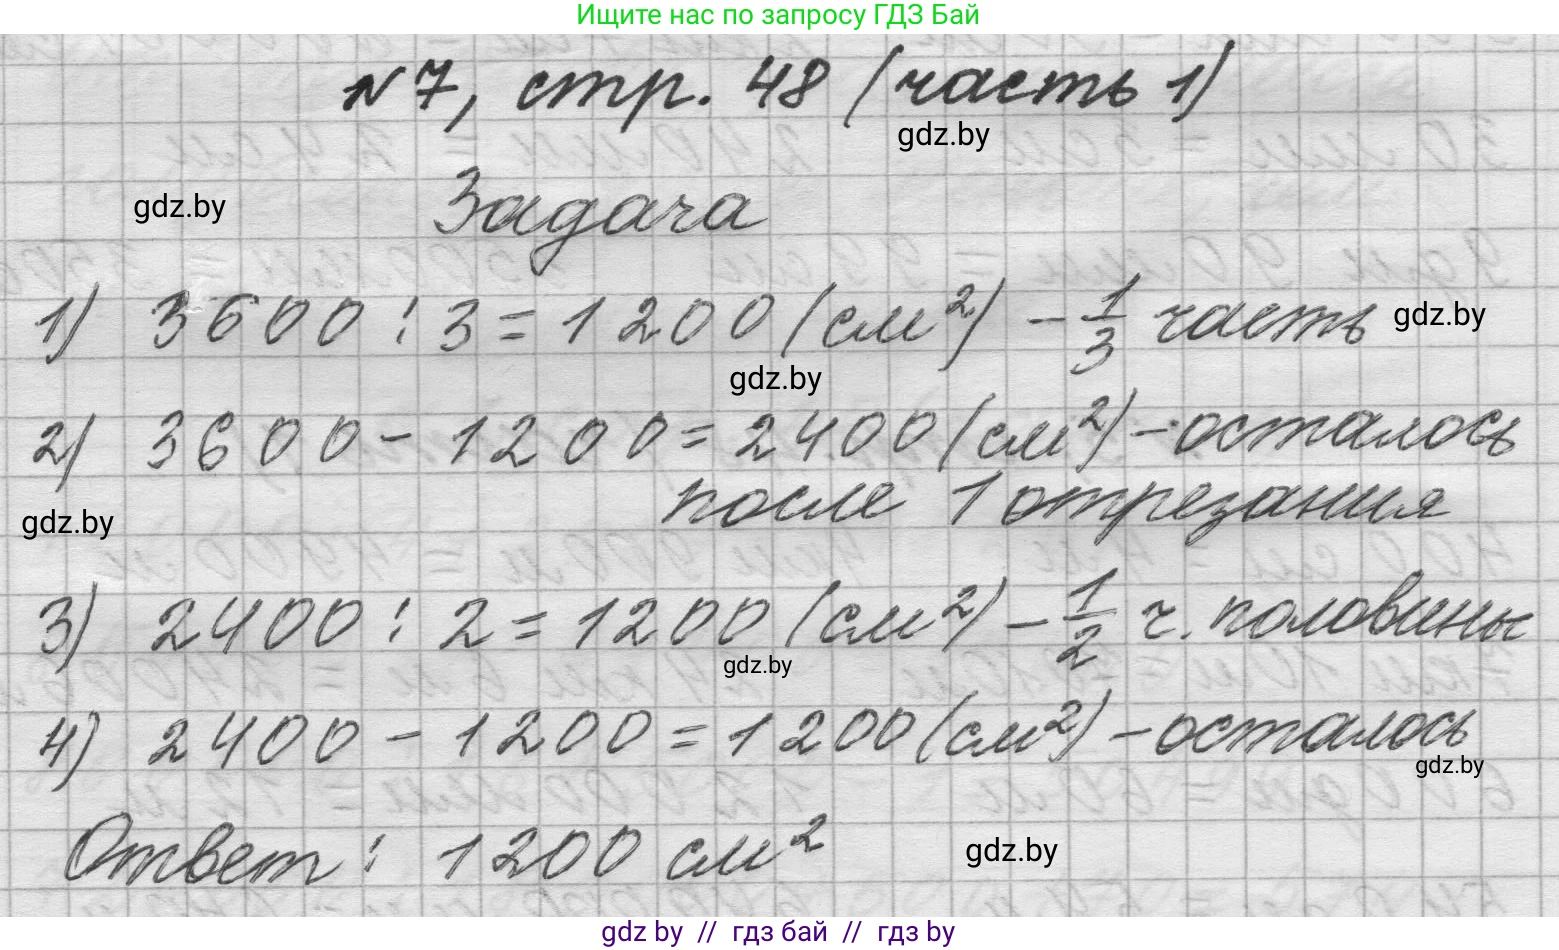 Ищите нас по запросу ГДЗ Бай
№7, стр. 48 (часть 1)
gdz.by
gdz.by
Задача
1) 3600 : 3 = 1200 (см²) - 1/3 часть
gdz.by
gdz.by
2) 3600 - 1200 = 2400 (см²) - осталось
после 1 отрезания
gdz.by
3) 2400 : 2 = 1200 (см²) - 1/2 ч. половины
gdz.by
4) 2400 - 1200 = 1200 (см²) - осталось
gdz.by
Ответ: 1200 см²
gdz.by
gdz by // гдз бай // gdz by